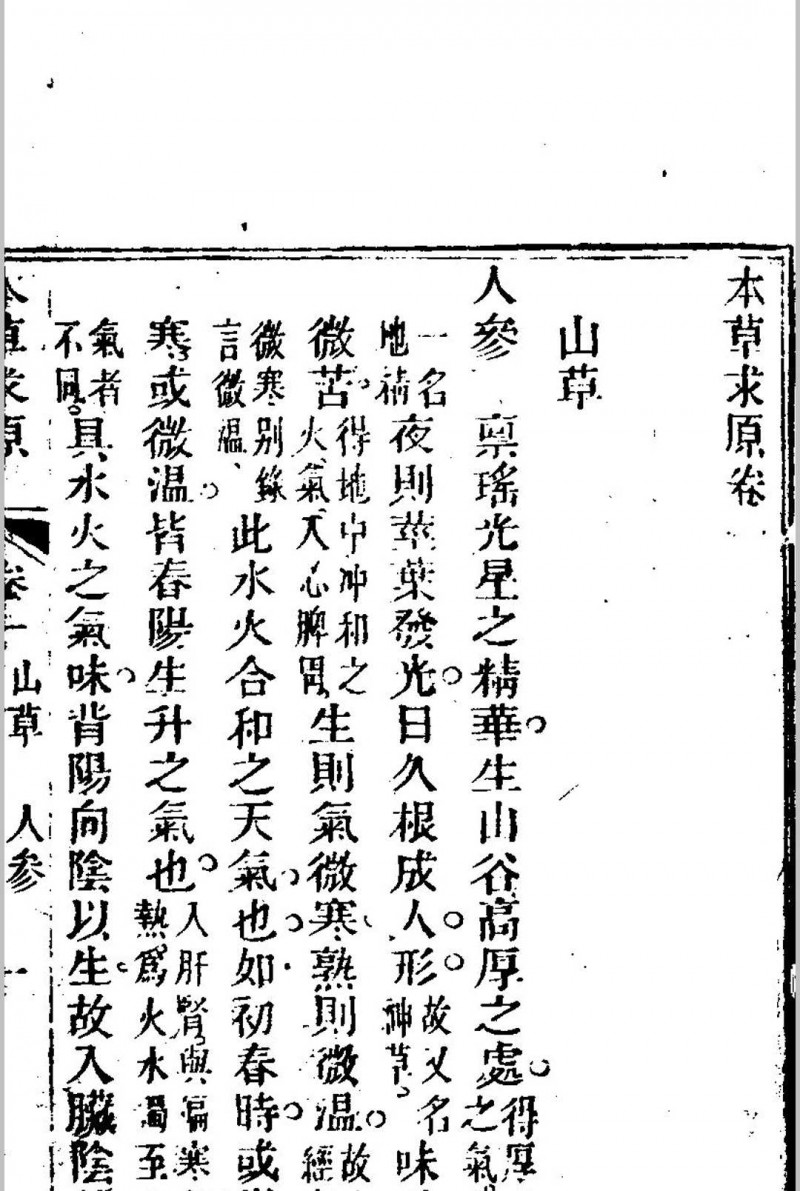 本草求原卷
山草
人參 稟瑤光星之精華生山谷高厚之處得厚之氣
一名地精夜則莖葉發光日久根成人形故又名神草味
微苦得地中冲和之火氣入心脾胃生則氣微寒熟則微溫故經
微寒别錄言微溫此水火合和之天氣也如初春時或
寒或微溫皆春陽生升之氣也入肝腎與偏寒熱爲火水濁至
氣者不同具水火之氣味背陽向陰以生故入臟陰
本草求原 卷一 山草 人參 一